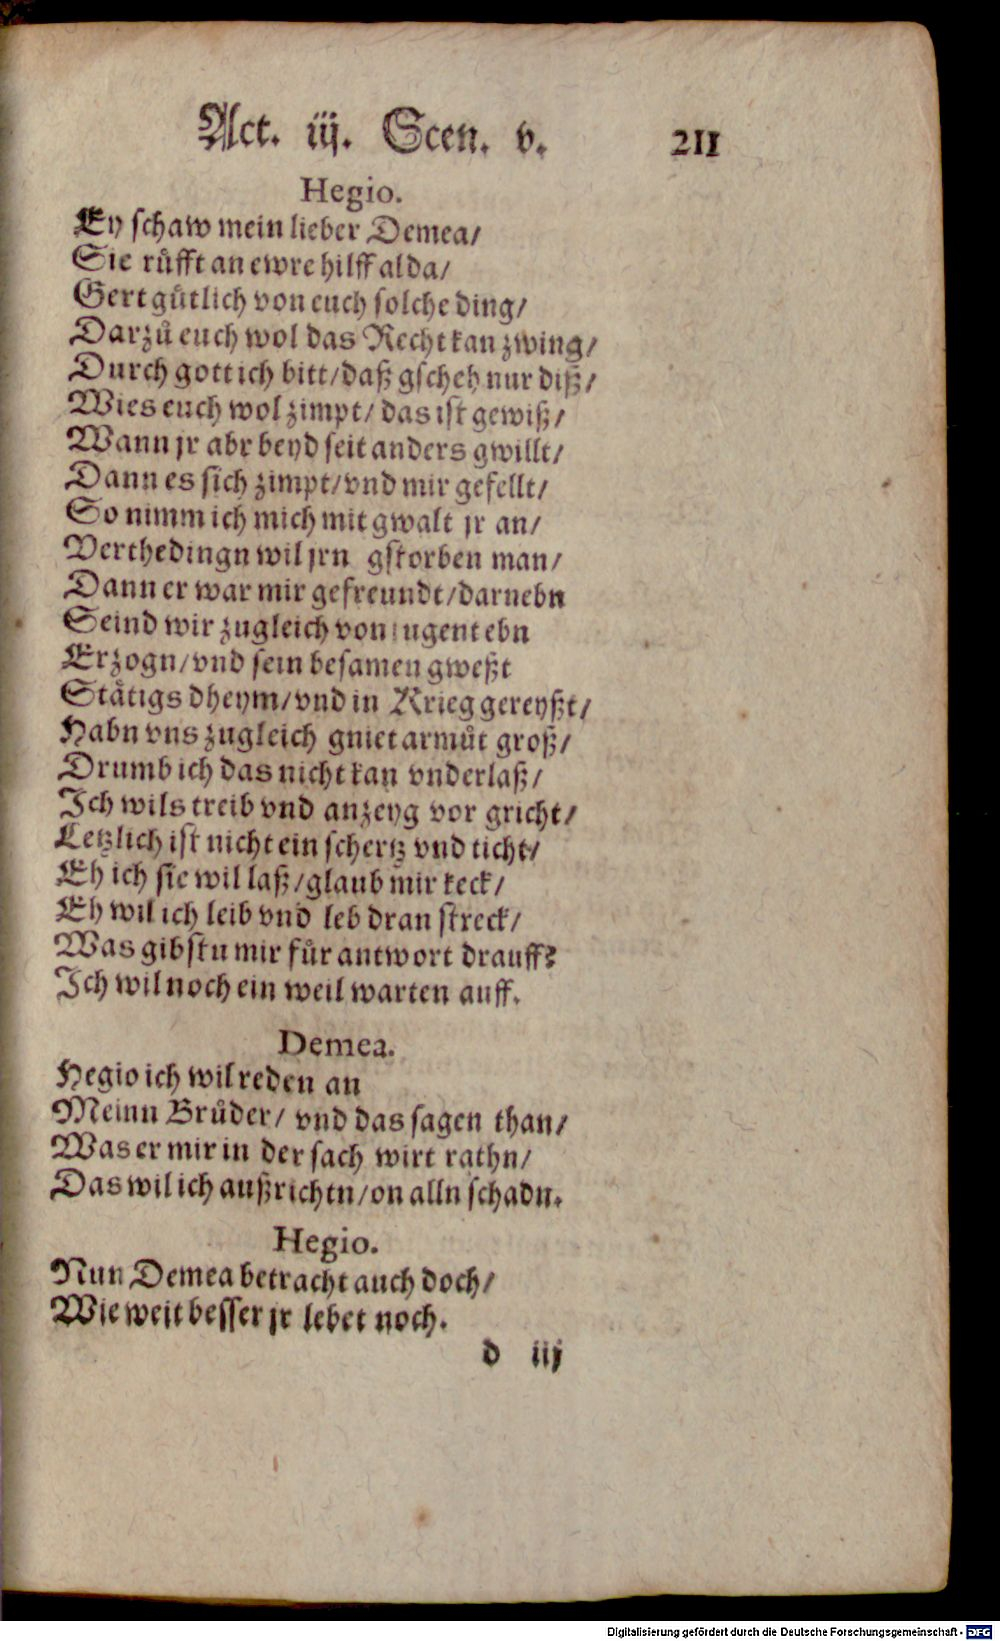 Act. iij. Scen. v. 211
Hegio.
Ey schaw mein lieber Demea/
Sie růfft an ewre hilff alda/
Gert gůtlich von euch solche ding/
Darzů euch wol das Recht kan zwing/
Durch gott ich bitt/daß gscheh nur diß/
Wies euch wol zimpt/ das ist gewiß/
Wann jr abr beyd seit anders gwillt/
Dann es sich zimpt/vnd mir gefellt/
So nimm ich mich mit gwalt jr an/
Verthedingn wil jrn gstorben man/
Dann er war mir gefreundt/darnebn
Seind wir zugleich von jugent ebn
Erzogn/vnd sein besamen gweßt
Ståtigs dheym/vnd in Krieg gereyßt/
Habn vns zugleich gniet armůt groß/
Drumb ich das nicht kan vnderlaß/
Ich wils treib vnd anzeyg vor gricht/
Letzlich ist nicht ein schertz vnd ticht/
Eh ich sie wil laß/glaub mir keck/
Eh wil ich leib vnd leb dran streck/
Was gibstu mir fůr antwort drauff?
Ich wil noch ein weil warten auff.
Demea.
Hegio ich wil reden an
Meinn Brůder/ vnd das sagen than/
Was er mir in der sach wirt rathn/
Das wil ich außrichtn/on alln schadn.
Hegio.
Nun Demea betracht auch doch/
Wie weit besser jr lebet noch.
d iij
Digitalisierung gefördert durch die Deutsche Forschungsgemeinschaft - DFG